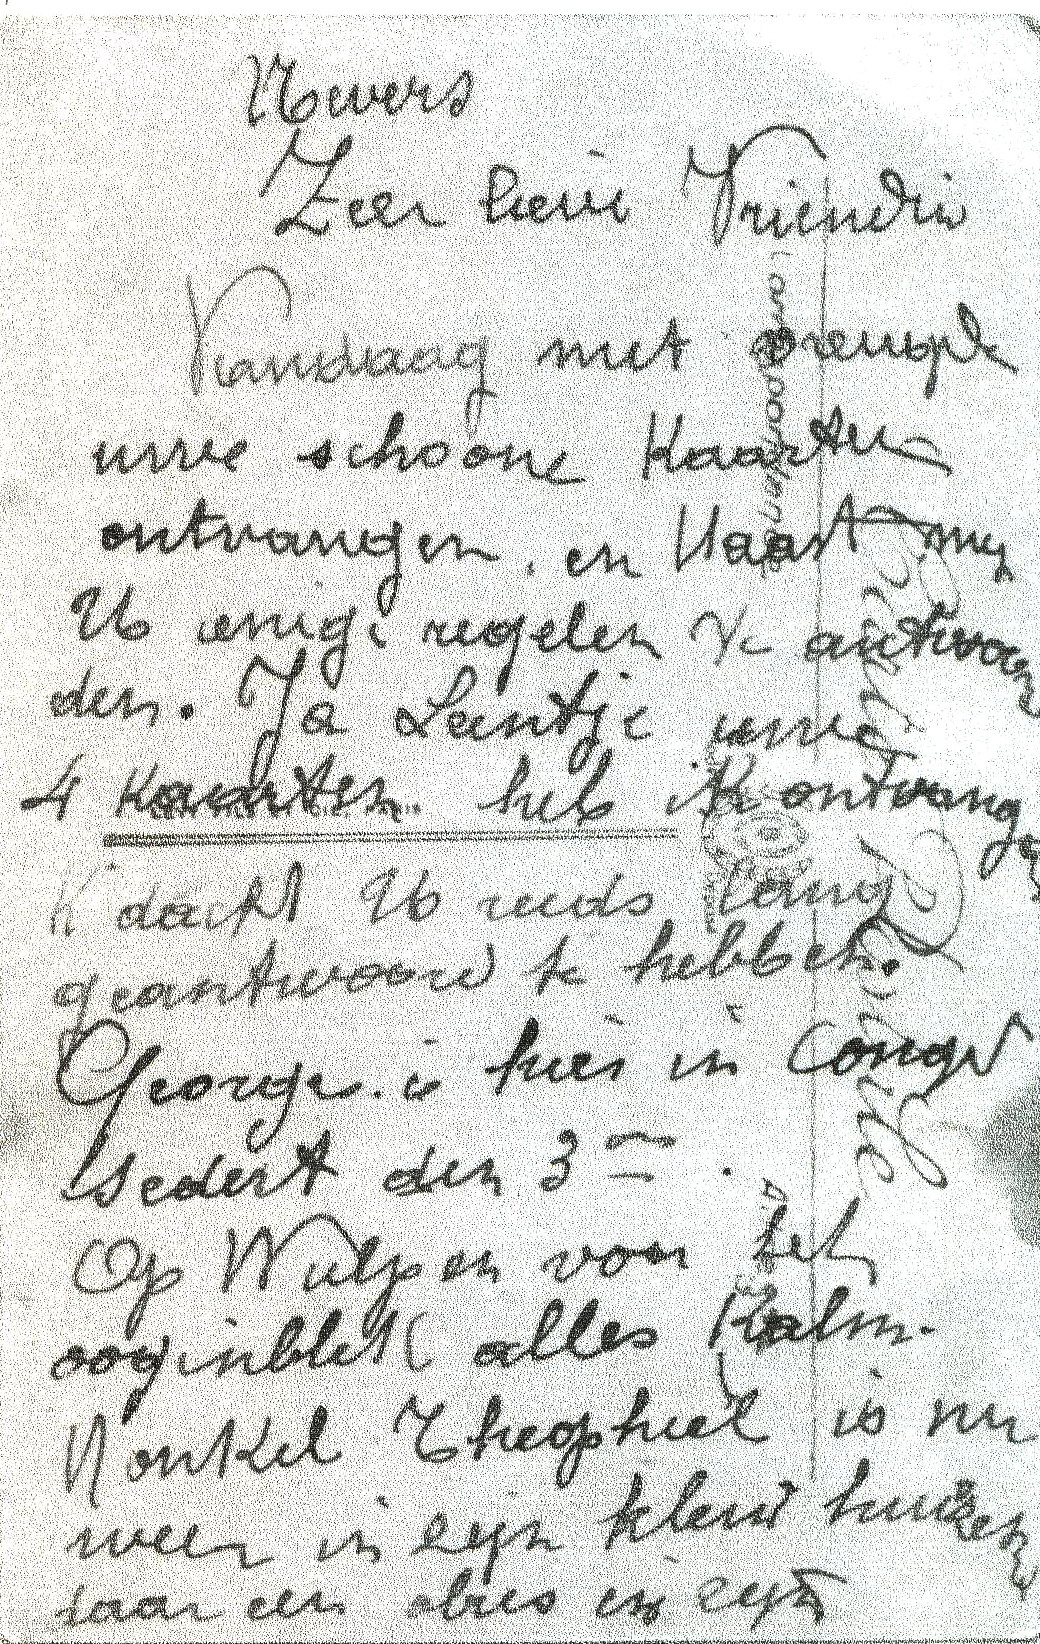 Nevers
Zeer lieve Vriendin
Vandaag met vreugde
uwe schoone Kaarten
ontvangen, en Haast my
U enige regelen te antwoor
den. Ja Leentje uwe
4 Kaarten heb ik ontvangen
K dacht U reeds lang
geantwoord te hebben.
George is hier in Congé
sedert den 3
Op Wulpen voor het
oogenblik alles Kalm.
Nonkel Theophiel is nu
weer in zijn klein huizeken
daar een obus in zijn